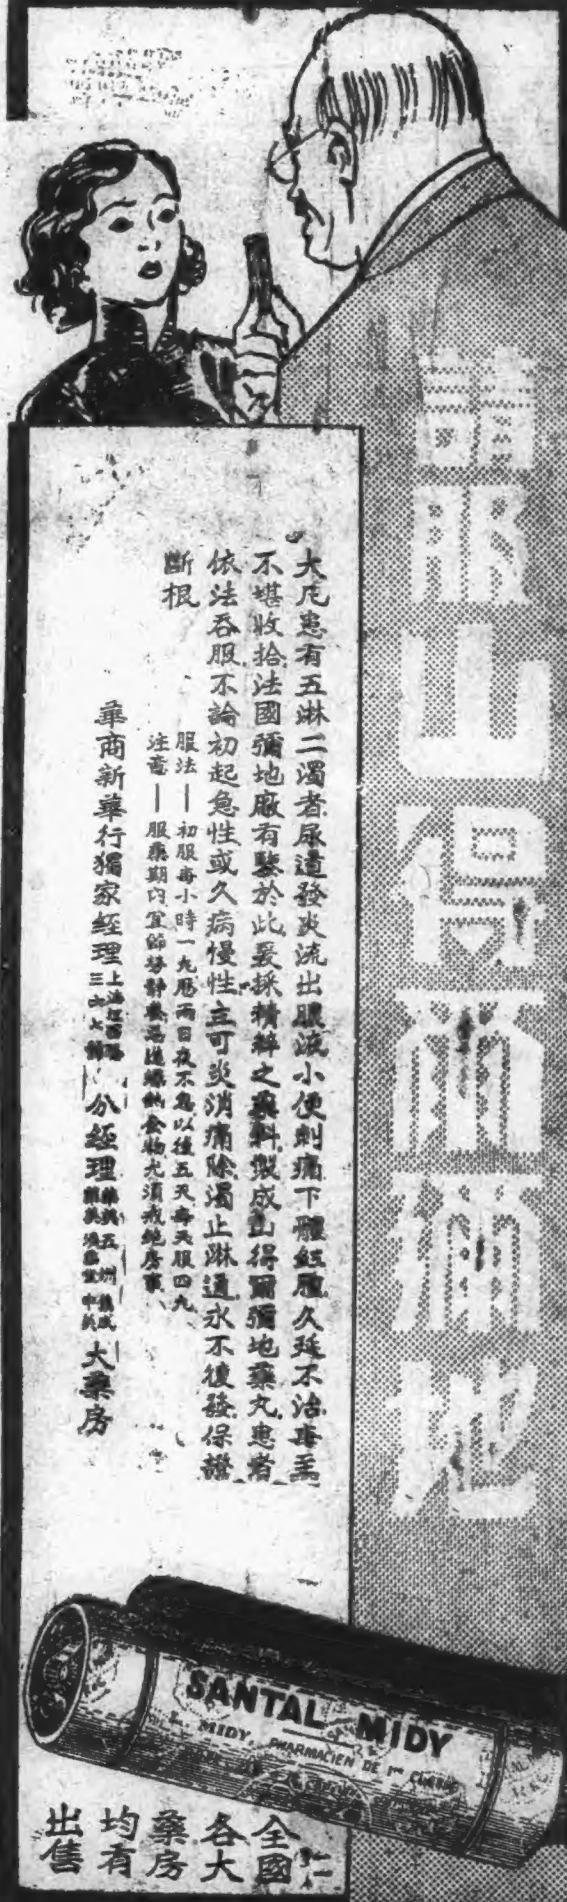 請服山得爾彌地
大凡患有五淋二濁者尿道發炎流出膿液小便刺痛下體紅腫久延不治毒至
不堪收拾法國彌地廠有鑒於此爰採精粹之藥料製成山得爾彌地藥丸患者
依法吞服不論初起急性或久病慢性立可炎消痛除濁止淋通永不復發保證
斷根
服法—初服每小時一丸歷兩日夜不息以後五天每天服四丸
注意—服藥期內宜節勞靜養忌進燥熱食物尤須戒絕房事
華商新華行獨家經理
上海江西路
三六七號
分經理
五洲
中英
大藥房
SANTAL MIDY
L. MIDY, PHARMACIEN DE 1re CLASSE
全國
各大
藥房
均有
出售